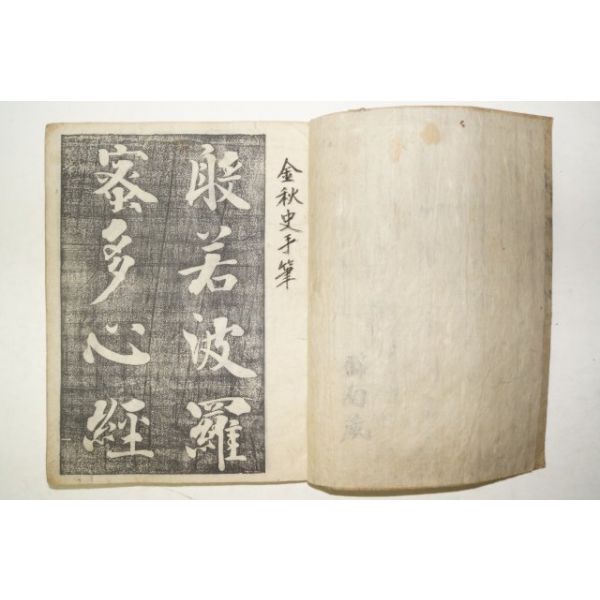 金秋史手筆
般若波羅
蜜多心經